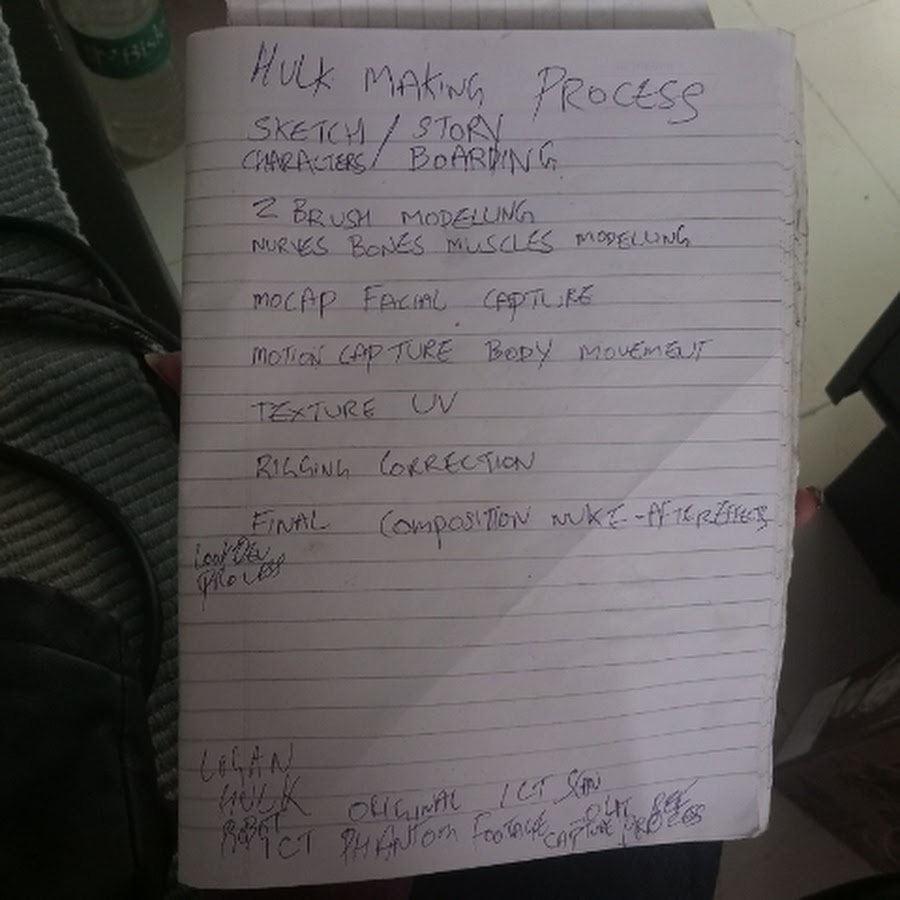 HULK MAKING PROCESS
SKETCH / STORY
CHARACTERS / BOARDING
Z BRUSH MODELLING
NURVES BONES MUSCLES MODELLING
MOCAP FACIAL CAPTURE
MOTION CAPTURE BODY MOVEMENT
TEXTURE UV
RIGGING CORRECTION
FINAL COMPOSITION NUKE-AFTEREFFECTS
LOOKDEV
PROCESS
LOGAN
HULK ORIGINAL ICT SCAN
ICT PHANTOM FOOTAGE
CAPTURE PROCESS